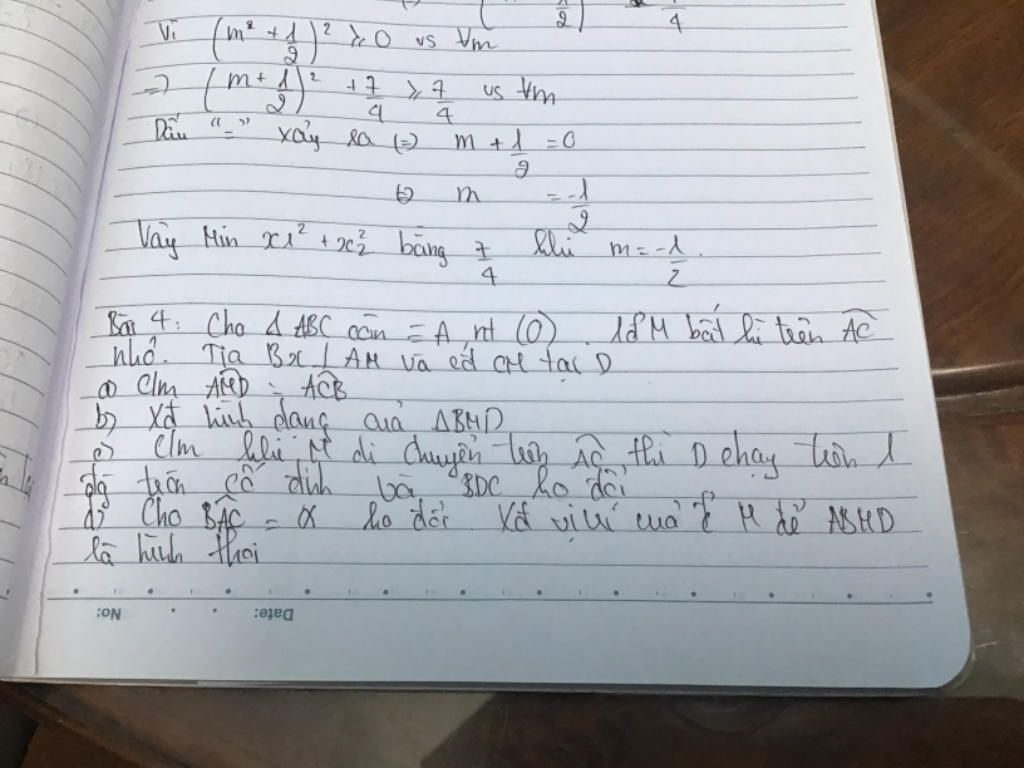 (=) ( 1/2 ) 4
Vì (m² + 1/2)² ≥ 0 vs ∀m
=) (m + 1/2)² + 7/4 ≥ 7/4 vs ∀m
Dấu "=" xảy ra (=) m + 1/2 = 0
(=) m = -1/2
Vậy Min x1² + x2² bằng 7/4 khi m = -1/2.
Bài 4: Cho Δ ABC cân = A nt (O). 1đ M bất kì trên AC
nhỏ. Tia Bx ⊥ AM và cắt CM tại D
a) C/m AMD = ACB
b) Xđ hình dạng của ΔBMD
c) C/m khi M di chuyển trên AC thì D chạy trên 1
đg tròn cố định và BDC ko đổi
d) Cho BAC = α ko đổi. Xđ vị trí của M để ABMD
là hình thoi
No: Date: